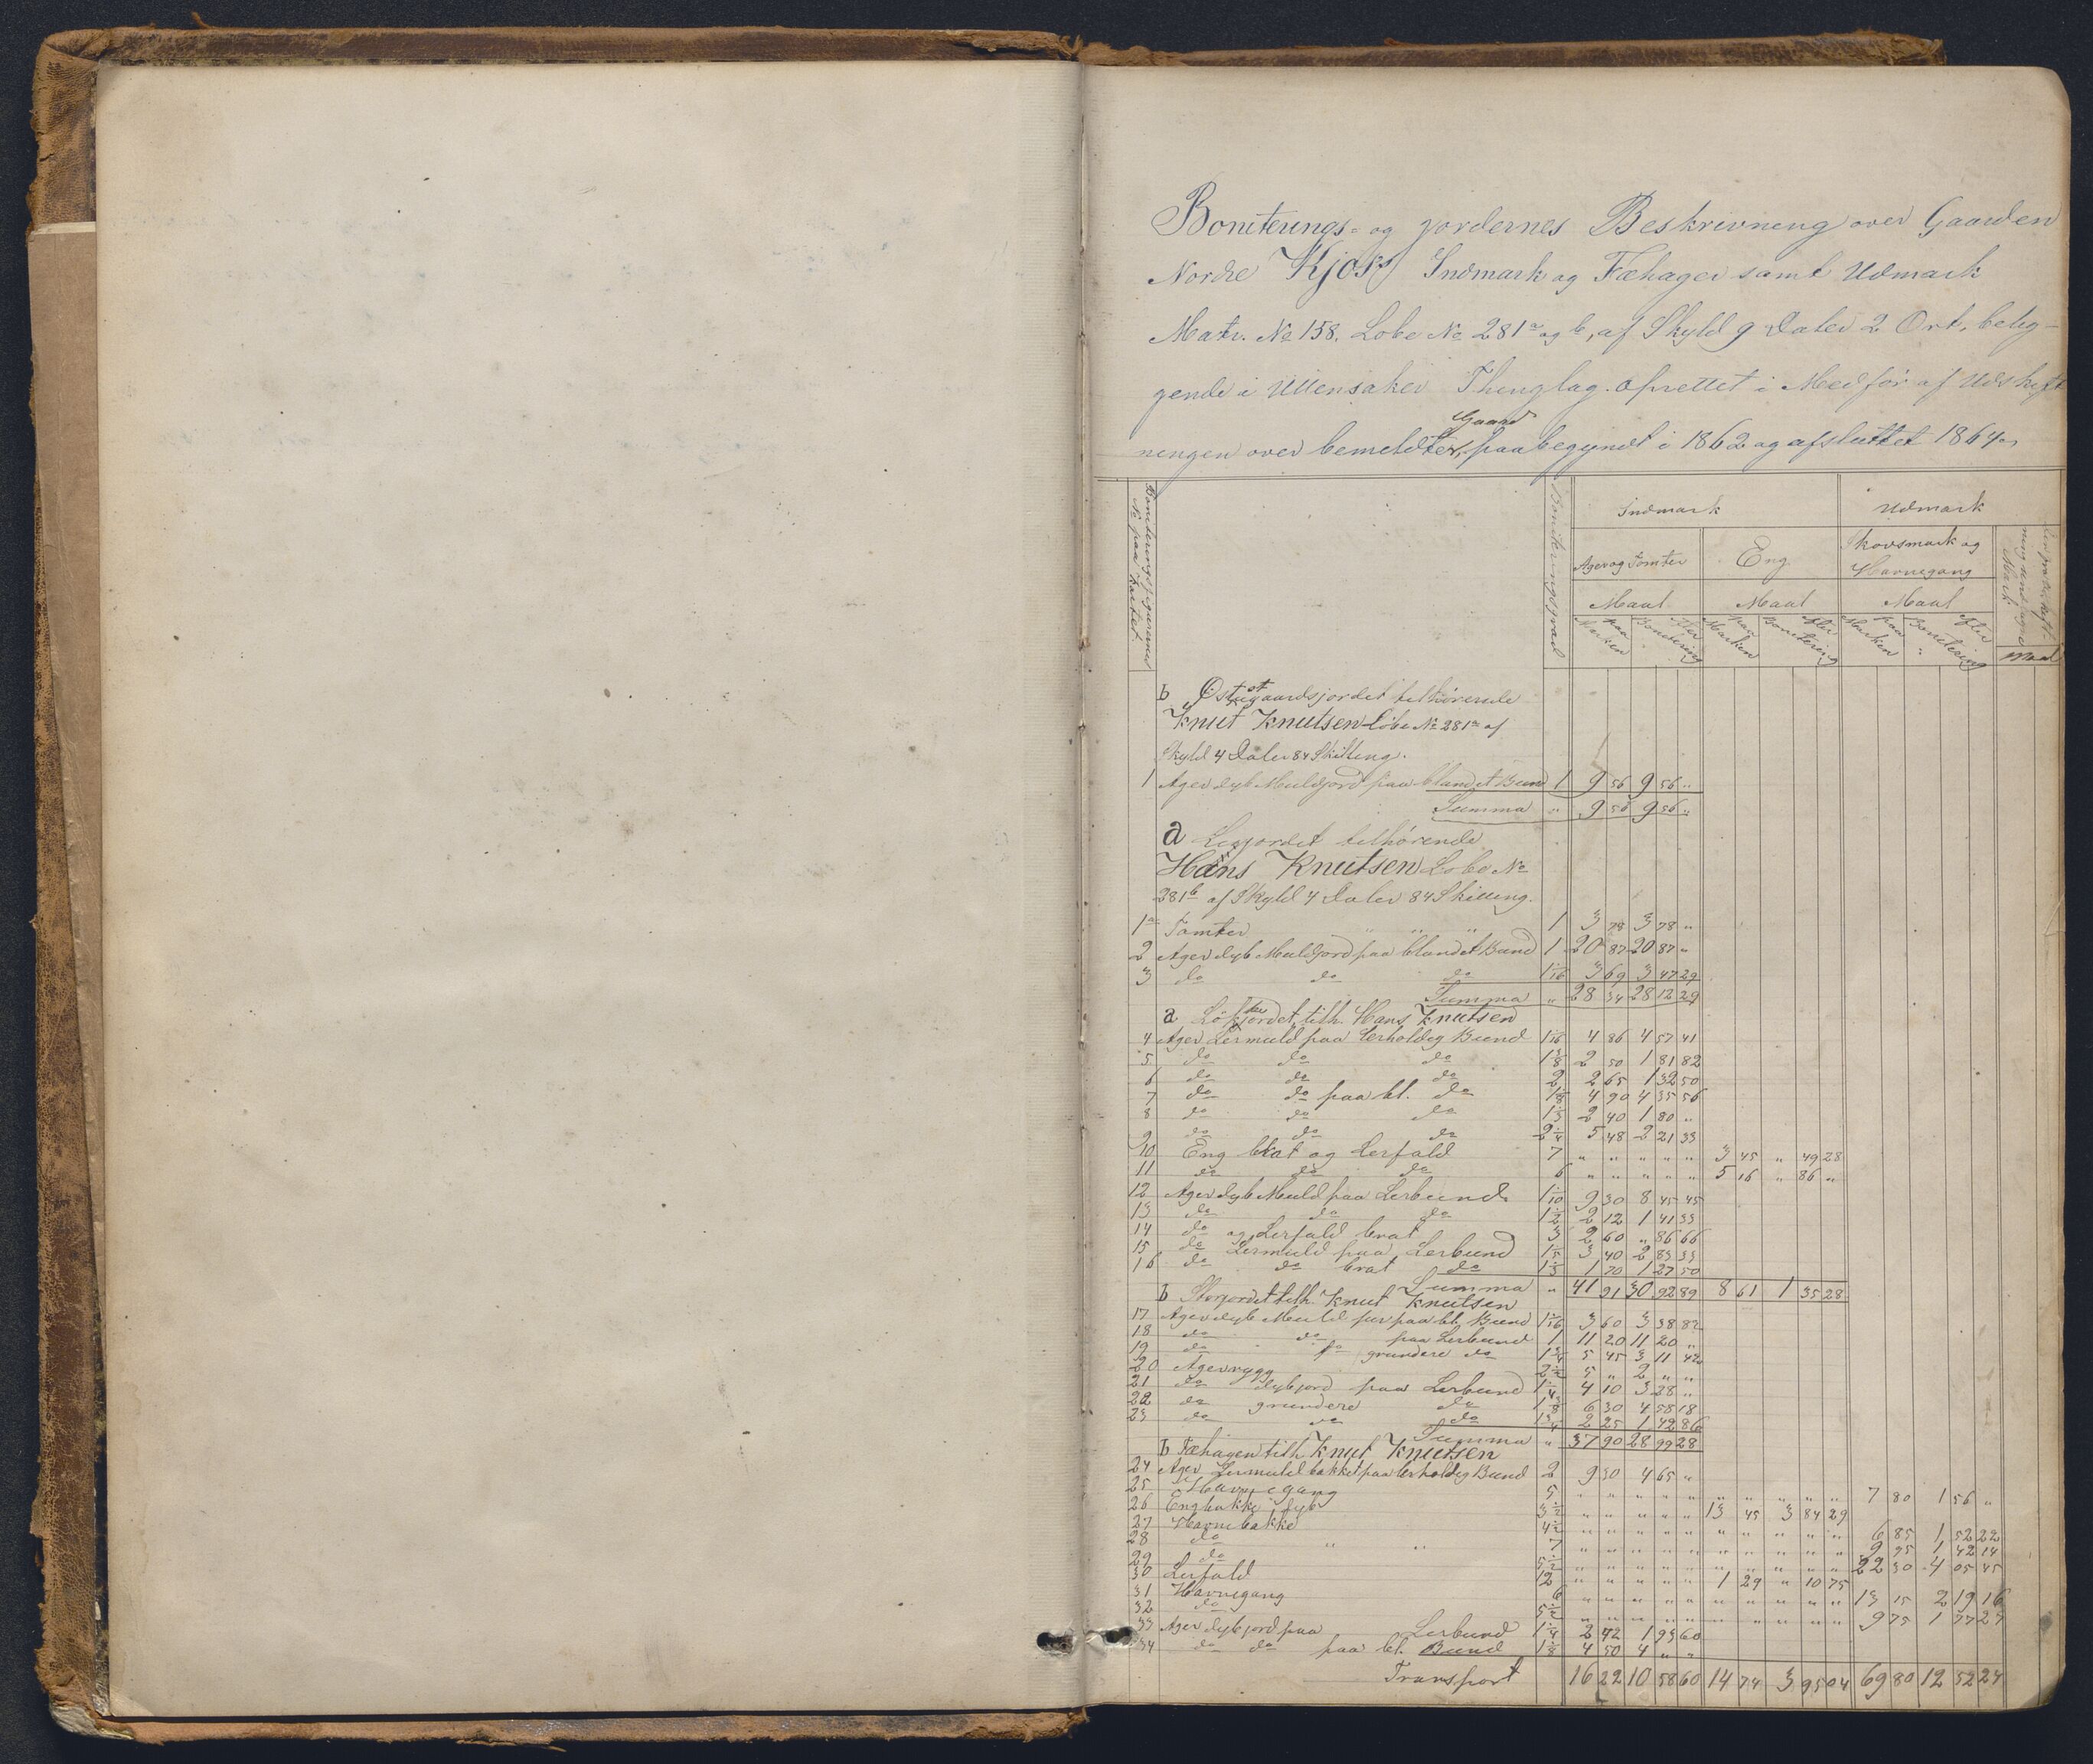 Boniterings- og jordernes Beskrivning over Gaarden
Nordre Kjos's Indmark og Fæhager samt Udmark
Matr. No 158. Løbe No 281a og b, af Skyld 9 Daler 2 Ort, belig-
gende i Ullensaker Thinglag. Oprettet i Medfør af Udskift
ningen over bemeldte Gaard, paabegyndt i 1862 og afsluttet 1864.
Boniteringsfigurernes No paa Kartet
Boniteringsgrad
Indmark
Udmark
Ager og Tomter
Eng.
Skovsmark og Havnegang
Maal
Maal
Maal
paa Marken
efter Bonitering
paa Marken
efter Bonitering
paa Marken
efter Bonitering
Maal
b Østregaardsjordet tilhørende
Knut Knutsen Løbe No 281a af
Skyld 4 Daler 84 Skilling.
1 Ager dyb Muldjord paa blandet Bund 1 9 56 9 56 "
Summa " 9 56 9 56 "
a tilhørende
Hans Knutsen Løbe No
281b af Skyld 4 Daler 84 Skilling.
1a Tomter " " " 1 3 78 3 78 "
2 Ager dyb Muldjord paa blandet Bund 1 20 87 20 87 "
3 do do do 1 1/16 3 69 3 47 29
Summa " 28 34 28 12 29
a tilh. Hans Knutsen
4 Ager Lermuld paa lerholdig Bund 1 1/16 4 86 4 57 41
5 do do do 1 3/8 2 50 1 81 82
6 do do do 2 2 65 1 32 50
7 do do paa bl. do 1 1/8 4 90 4 35 56
8 do do do 1 1/3 2 40 1 80 "
9 do do do 2 1/4 5 48 2 21 33
10 Eng brat og Lerfald 7 " " " " " 3 45 " 49 28
11 do do do 6 " " " " " 5 16 " 86 "
12 Ager dyb Muld paa Lerbund 1 1/10 9 30 8 45 45
13 do do do 1 1/2 2 12 1 41 33
14 do og Lerfald brat 3 2 60 " 86 66
15 do Lermuld paa Lerbund 1 1/5 3 40 2 83 33
16 do do brat do 1 1/3 1 70 1 27 50
Summa " 41 91 30 92 89 8 61 1 35 28
b Storjordet tilh. Knut Knutsen
17 Ager dyb Muld paa bl. Bund 1 1/16 3 60 3 38 82
18 do do paa Lerbund 1 11 20 11 20 "
19 do do grundere do 1 3/4 5 45 3 11 42
20 Agerrygg 2 1/2 5 " 2 " "
21 do dybjord paa Lerbund 1 1/4 4 10 3 28 "
22 do grundere do 1 3/8 6 30 4 58 18
23 do do do 1 3/4 2 25 1 42 86
Summa " 37 90 28 99 28
b Fæhagen tilh. Knut Knutsen
24 Ager Lermuld bakket paa lerholdig Bund 2 9 30 4 65 "
25 Havnegang 5 " " " " " " " " " " 7 80 1 56 "
26 Engbakke dyb 3 1/2 " " " " " 13 45 3 84 29
27 Havnebakke 4 1/2 " " " " " " " " " " 6 85 1 52 22
28 do " " 7 " " " " " " " " " " 9 95 1 42 14
29 do 5 1/2 " " " " " " " " " " 22 30 4 05 45
30 Lerfald 12 " " " " " 1 29 " 10 75
31 Havnegang 6 " " " " " " " " " " 13 15 2 19 16
32 do 5 1/2 " " " " " " " " " " 9 75 1 77 27
33 Ager dybjord paa Lerbund 1 1/4 2 42 1 93 60
34 do do paa bl. Bund 1 1/8 4 50 4 " "
Transport 16 22 10 58 60 14 74 3 95 04 69 80 12 52 24